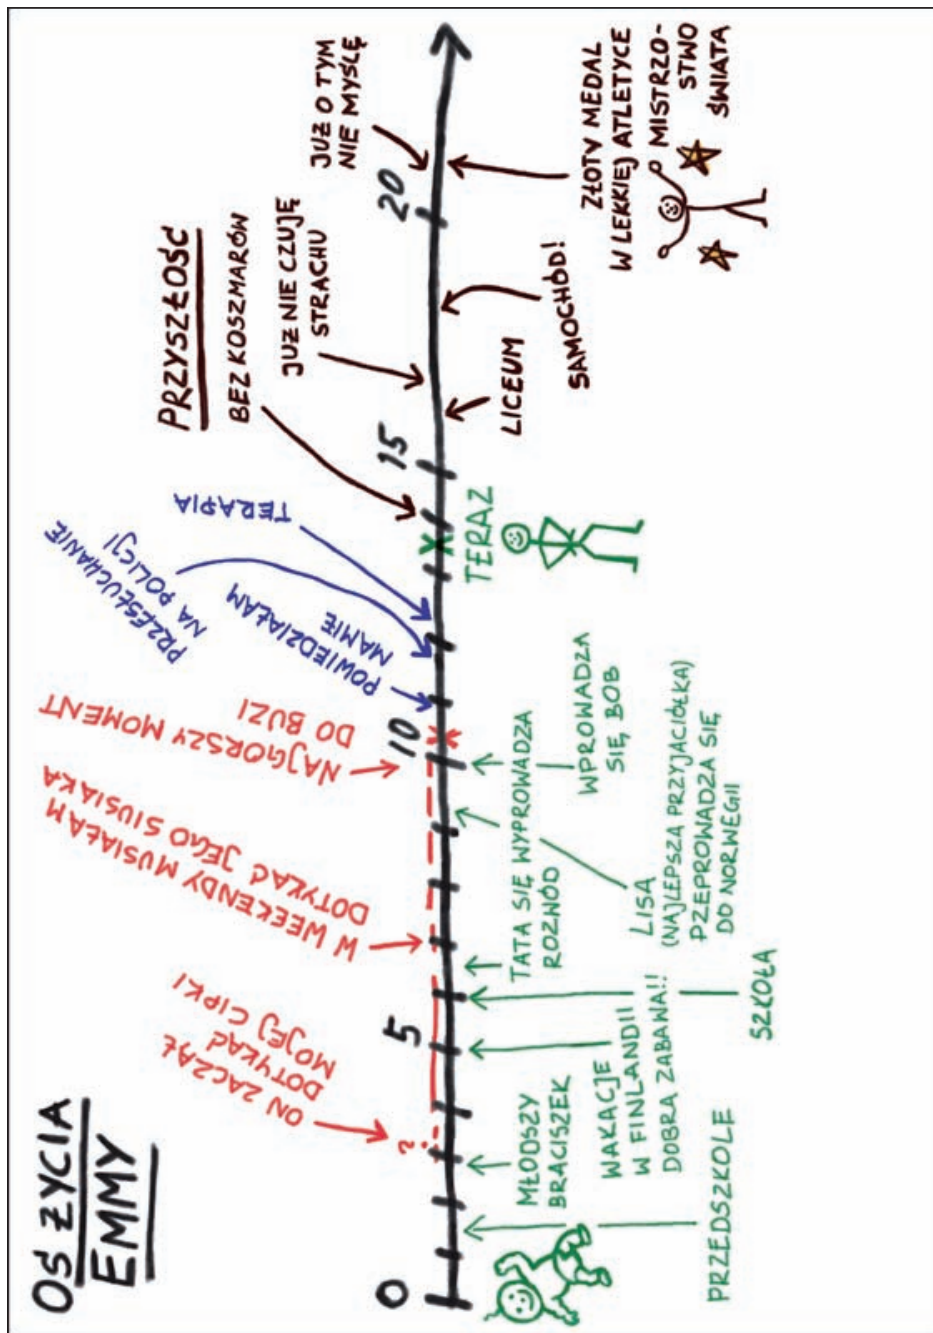 OŚ ŻYCIA
EMMY
ON ZACZĄŁ
DOTYKAĆ
MOJEJ CIPKI
?
W WEEKENDY MUSIAŁAM
DOTYKAĆ JEGO SIUSIAKA
NAJGORSZY MOMENT
DO BUZI
POWIEDZIAŁAM
MAMIE
PRZESŁUCHANIE
NA POLICJI
TERAPIA
PRZYSZŁOŚĆ
BEZ KOSZMARÓW
JUŻ NIE CZUJĘ
STRACHU
JUŻ O TYM
NIE MYŚLĘ
0
5
10
15
20
PRZEDSZKOLE
MŁODSZY
BRACISZEK
WAKACJE
W FINLANDII
DOBRA ZABAWA!!
SZKOŁA
TATA SIĘ WYPROWADZA
ROZWÓD
LISA
(NAJLEPSZA PRZYJACIÓŁKA)
PZEPROWADZA SIĘ
DO NORWEGII
WPROWADZA
SIĘ BOB
TERAZ
LICEUM
SAMOCHÓD!
ZŁOTY MEDAL
W LEKKIEJ ATLETYCE
MISTRZO-
STWO
ŚWIATA